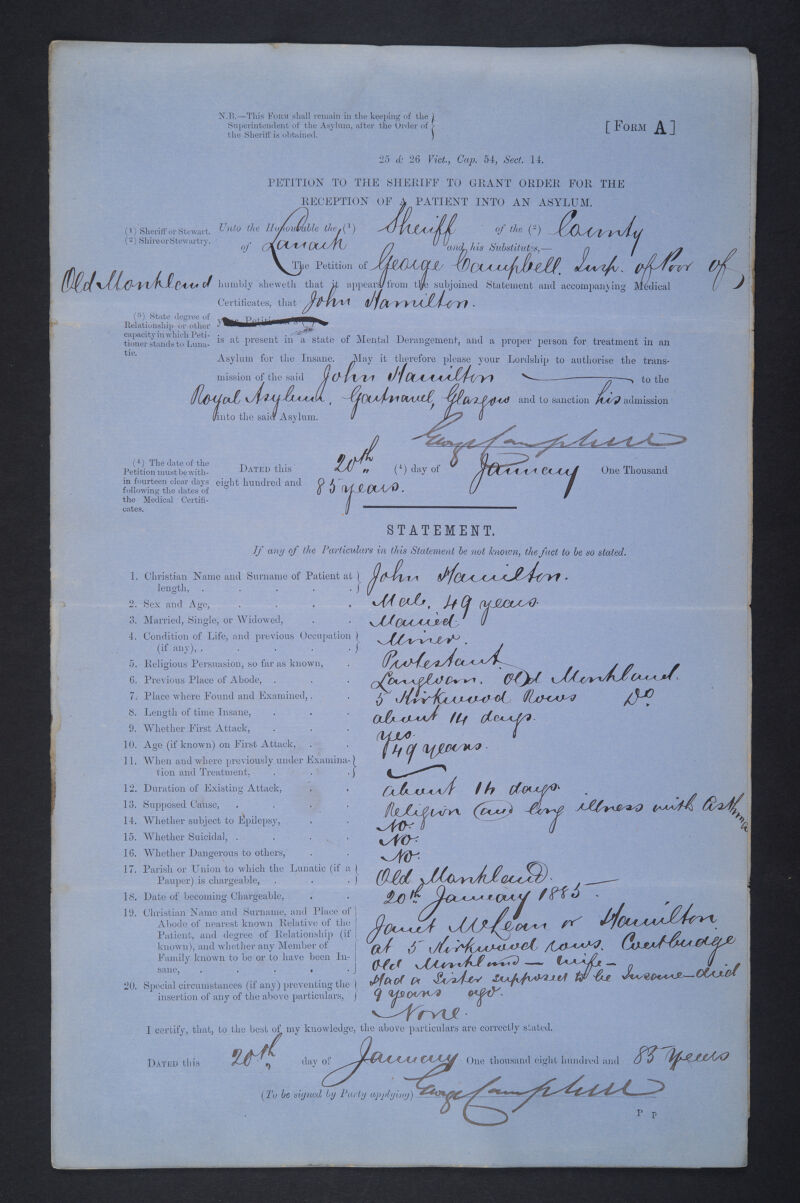 N.B.—This Form shall remain in the keeping of the
Superintendent of the Asylum, after the Order of
the Sheriff is obtained.
[FORM A]
25 & 26 Vict., Cap. 54, Sect. 14.
PETITION TO THE SHERIFF TO GRANT ORDER FOR THE
RECEPTION OF A PATIENT INTO AN ASYLUM.
(1) Sheriff or Stewart.
(2) Shire or Stewartry.
Unto the Honourable the (1) Sheriff of the (2) County
of Lanark and his Substitutes,—
The Petition of George Campbell. Insp. of Poor of
Old Monkland humbly sheweth that it appears from the subjoined Statement and accompanying Medical
Certificates, that John Hamilton.
(3) State degree of
Relationship or other
capacity in which Peti-
tioner stands to Luna-
tic.
is at present in a state of Mental Derangement, and a proper person for treatment in an
Asylum for the Insane. May it therefore please your Lordship to authorise the trans-
mission of the said John Hamilton to the
Royal Asylum, Gartnavel, Glasgow and to sanction his admission
into the said Asylum.
George Campbell
(4) The date of the
Petition must be with-
in fourteen clear days
following the dates of
the Medical Certifi-
cates.
DATED this 20th (4) day of January One Thousand
eight hundred and 85 years.
STATEMENT.
If any of the Particulars in this Statement be not known, the fact to be so stated.
1. Christian Name and Surname of Patient at
length, . John Hamilton.
2. Sex and Age, Male. 49 years
3. Married, Single, or Widowed, Married
4. Condition of Life, and previous Occupation
(if any), . Miner.
5. Religious Persuasion, so far as known, Protestant
6. Previous Place of Abode, . Langloan. Old Monkland.
7. Place where Found and Examined, . 5 Kirkwood Rows Do
8. Length of time Insane, about 14 days.
9. Whether First Attack, yes.
10. Age (if known) on First Attack, 49 years.
11. When and where previously under Examina-
tion and Treatment,
12. Duration of Existing Attack, about 14 days.
13. Supposed Cause, Religion (and long illness with Asthma
14. Whether subject to Epilepsy, No.
15. Whether Suicidal, . No.
16. Whether Dangerous to others, No.
17. Parish or Union to which the Lunatic (if a
Pauper) is chargeable, Old Monkland.
18. Date of becoming Chargeable, 20th January 1885.
19. Christian Name and Surname, and Place of
Abode of nearest known Relative of the
Patient, and degree of Relationship (if
known), and whether any Member of
Family known to be or to have been In-
sane,
Janet McLean or Hamilton
at 5 Kirkwood rows. Coatbridge
Old Monkland — Wife —
Had a Sister supposed to be Insane — died
9 years ago.
20. Special circumstances (if any) preventing the
insertion of any of the above particulars,
None.
I certify, that, to the best of my knowledge, the above particulars are correctly stated.
DATED this 20th day of January One thousand eight hundred and 85 Years
(To be signed by Party applying) George Campbell
P P